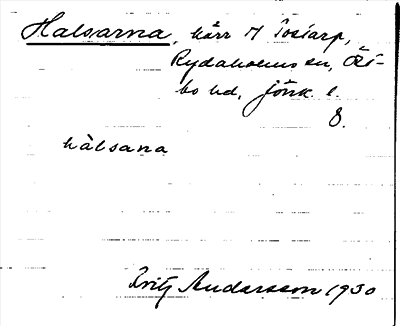 Halsarna, kärr M Tostarp,
Rydaholms sn, Öst-
bo hd, Jönk. l.
8.
hàlsana
Fritz Andersson 1930